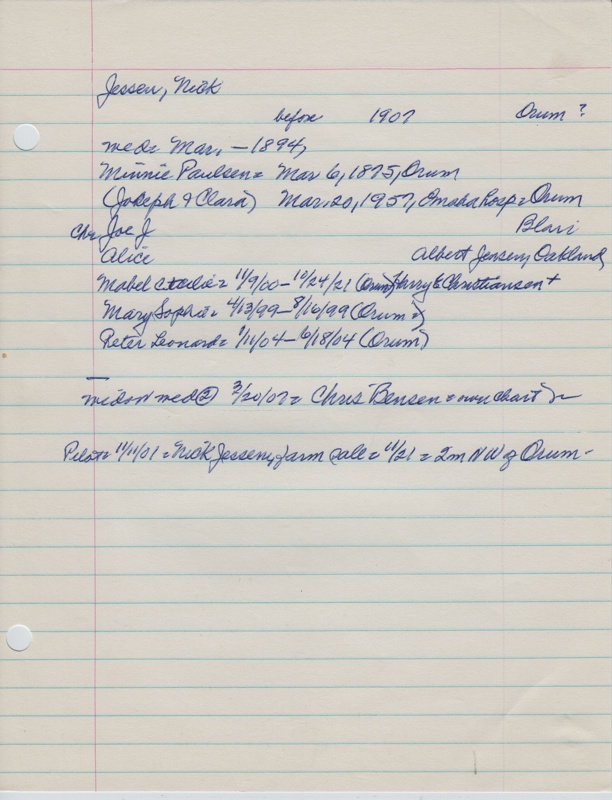 Jessen, Nick
before 1907 Orum ?
wed = Mar. - 1894,
Minnie Paulsen = Mar 6, 1875, Orum
(Joseph & Clara) Mar. 20, 1957, Omaha hosp = Orum
Chr Joe J Blair
Alice Albert Jensen, Oakland,
Mabel = 11/9/00 - 10/24/21 (Orum) Harry E Christiansen +
Mary Sophie = 4/13/99 - 8/16/99 (Orum =)
Peter Leonard = 1/11/04 - 6/18/04 (Orum)
widow wed (2) 3/20/07 = Chris Bensen = own chart
Pilot = 11/11/01 = Nick Jessen, farm sale = 11/21 = 2m NW of Orum -